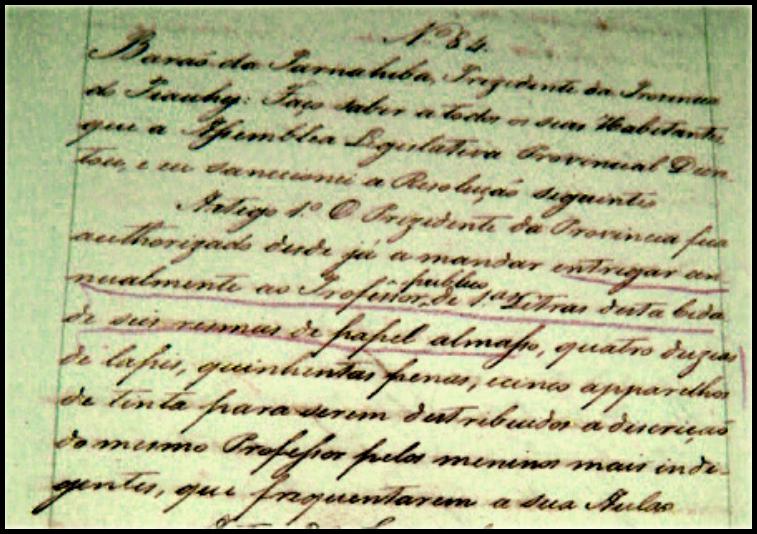 Nº 84.
Baraõ da Parnahiba, Prezidente da Provincia
do Piauhy: Faço saber a todos os seus Habitantes,
que a Assemblea Legislativa Provincial Decre-
tou, e eu sanccionei a Resoluçaõ seguinte
Artigo 1.º O Prezidente da Provincia fica
authorizado desde já a mandar entregar an
nualmente ao Professor publico de 1.as Letras desta Cida
de seis resmas de papel almasso, quatro duzias
de lapis, quinhentas penas, e cinco apparelhos
de tinta para serem destribuidos a descriçaõ
do mesmo Professor pelos meninos mais inde-
gentes, que frequentarem a sua Aula